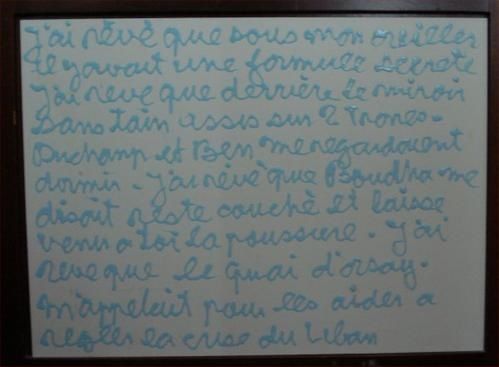 j'ai rêvé que sous mon oreiller
il y avait une formule secrète
j'ai rêve que derrière le miroir
sans tain assis sur 2 trones.
Duchamp et Ben me regardaient
dormir. j'ai rêvé que Boudha me
disait reste couché et laisse
venir a toi la poussiere. j'ai
reve que le quai d'orsay.
m'appelait pour les aider a
regler la crise du Liban